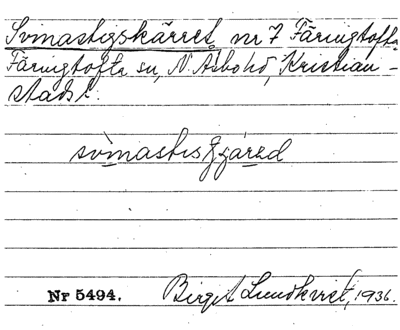 Svinastigskärret nr 7 Färingtofta
Färingtofta sn, N Åsbo hd, Kristian-
stads l.
Nr 5494. Birgit Lundkvist, 1936.